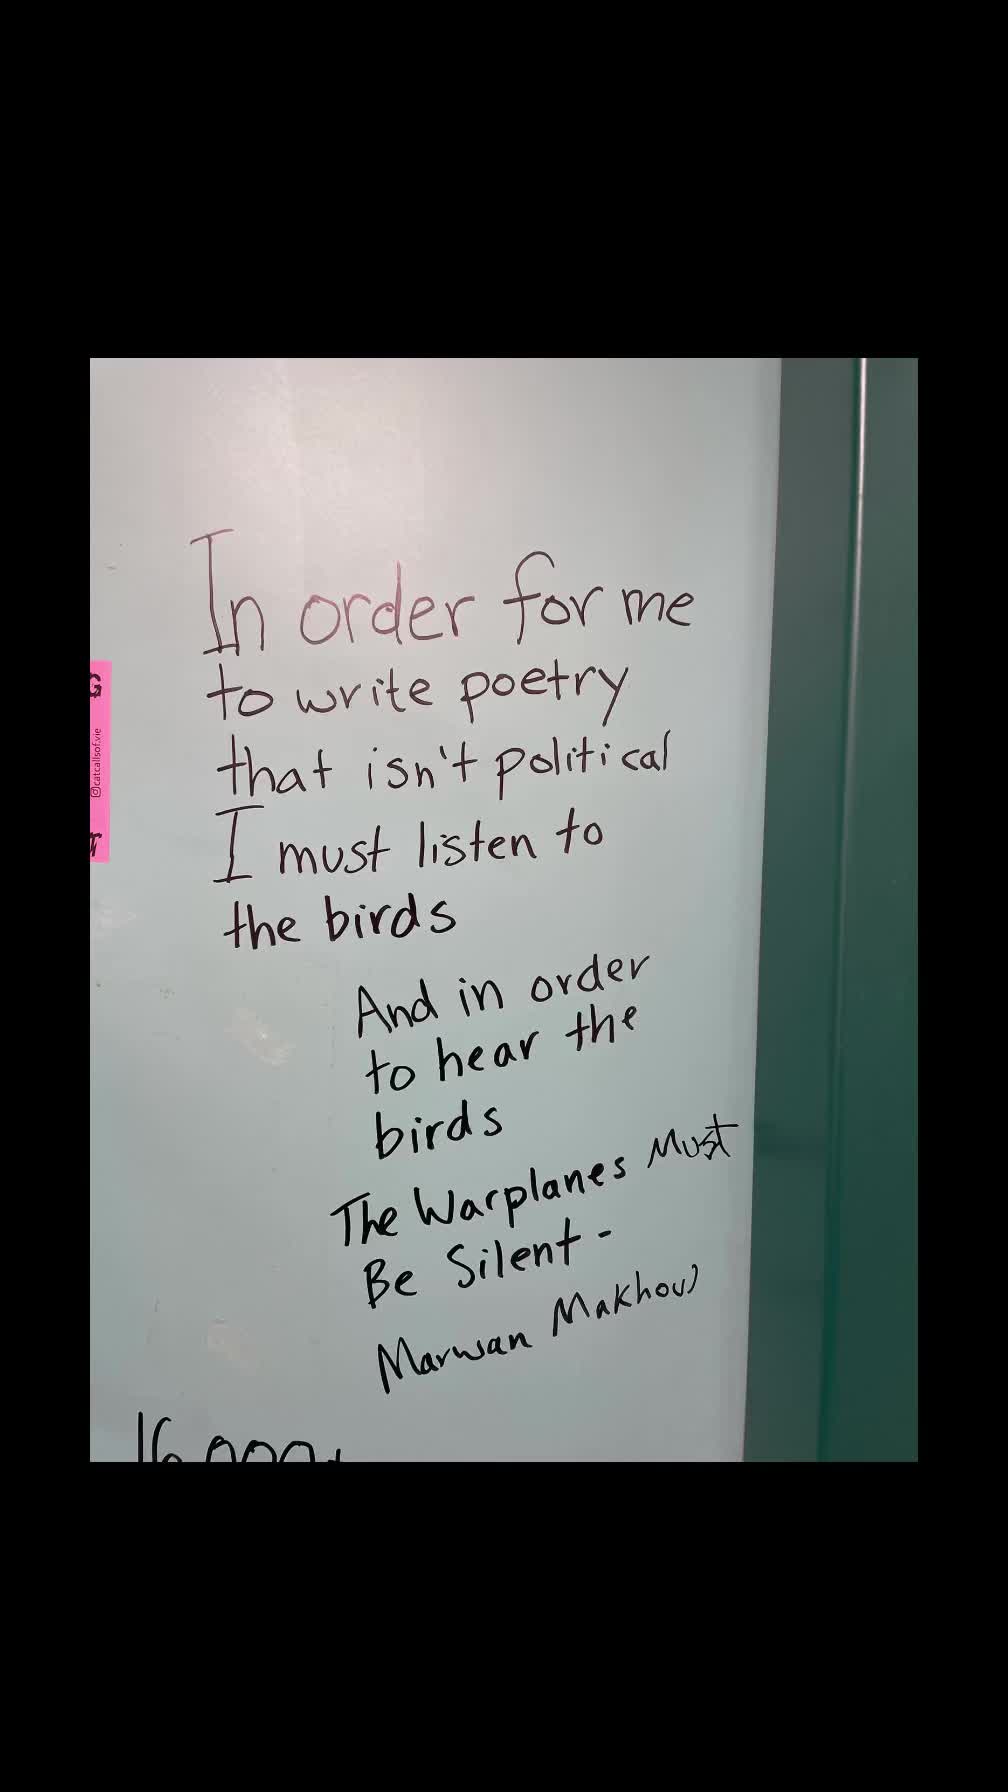 In order for me
to write poetry
that isn't political
I must listen to
the birds
And in order
to hear the
birds
The Warplanes Must
Be Silent -
Marwan Makhoul
@catcallsof.vie